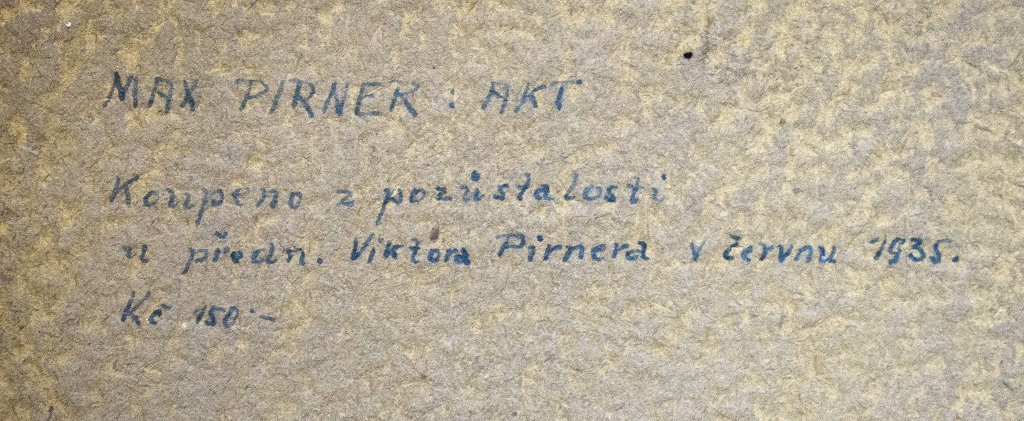 MAX PIRNER : AKT
Koupeno z pozůstalosti
u předn. Viktora Pirnera v červnu 1935.
Kč 150·–